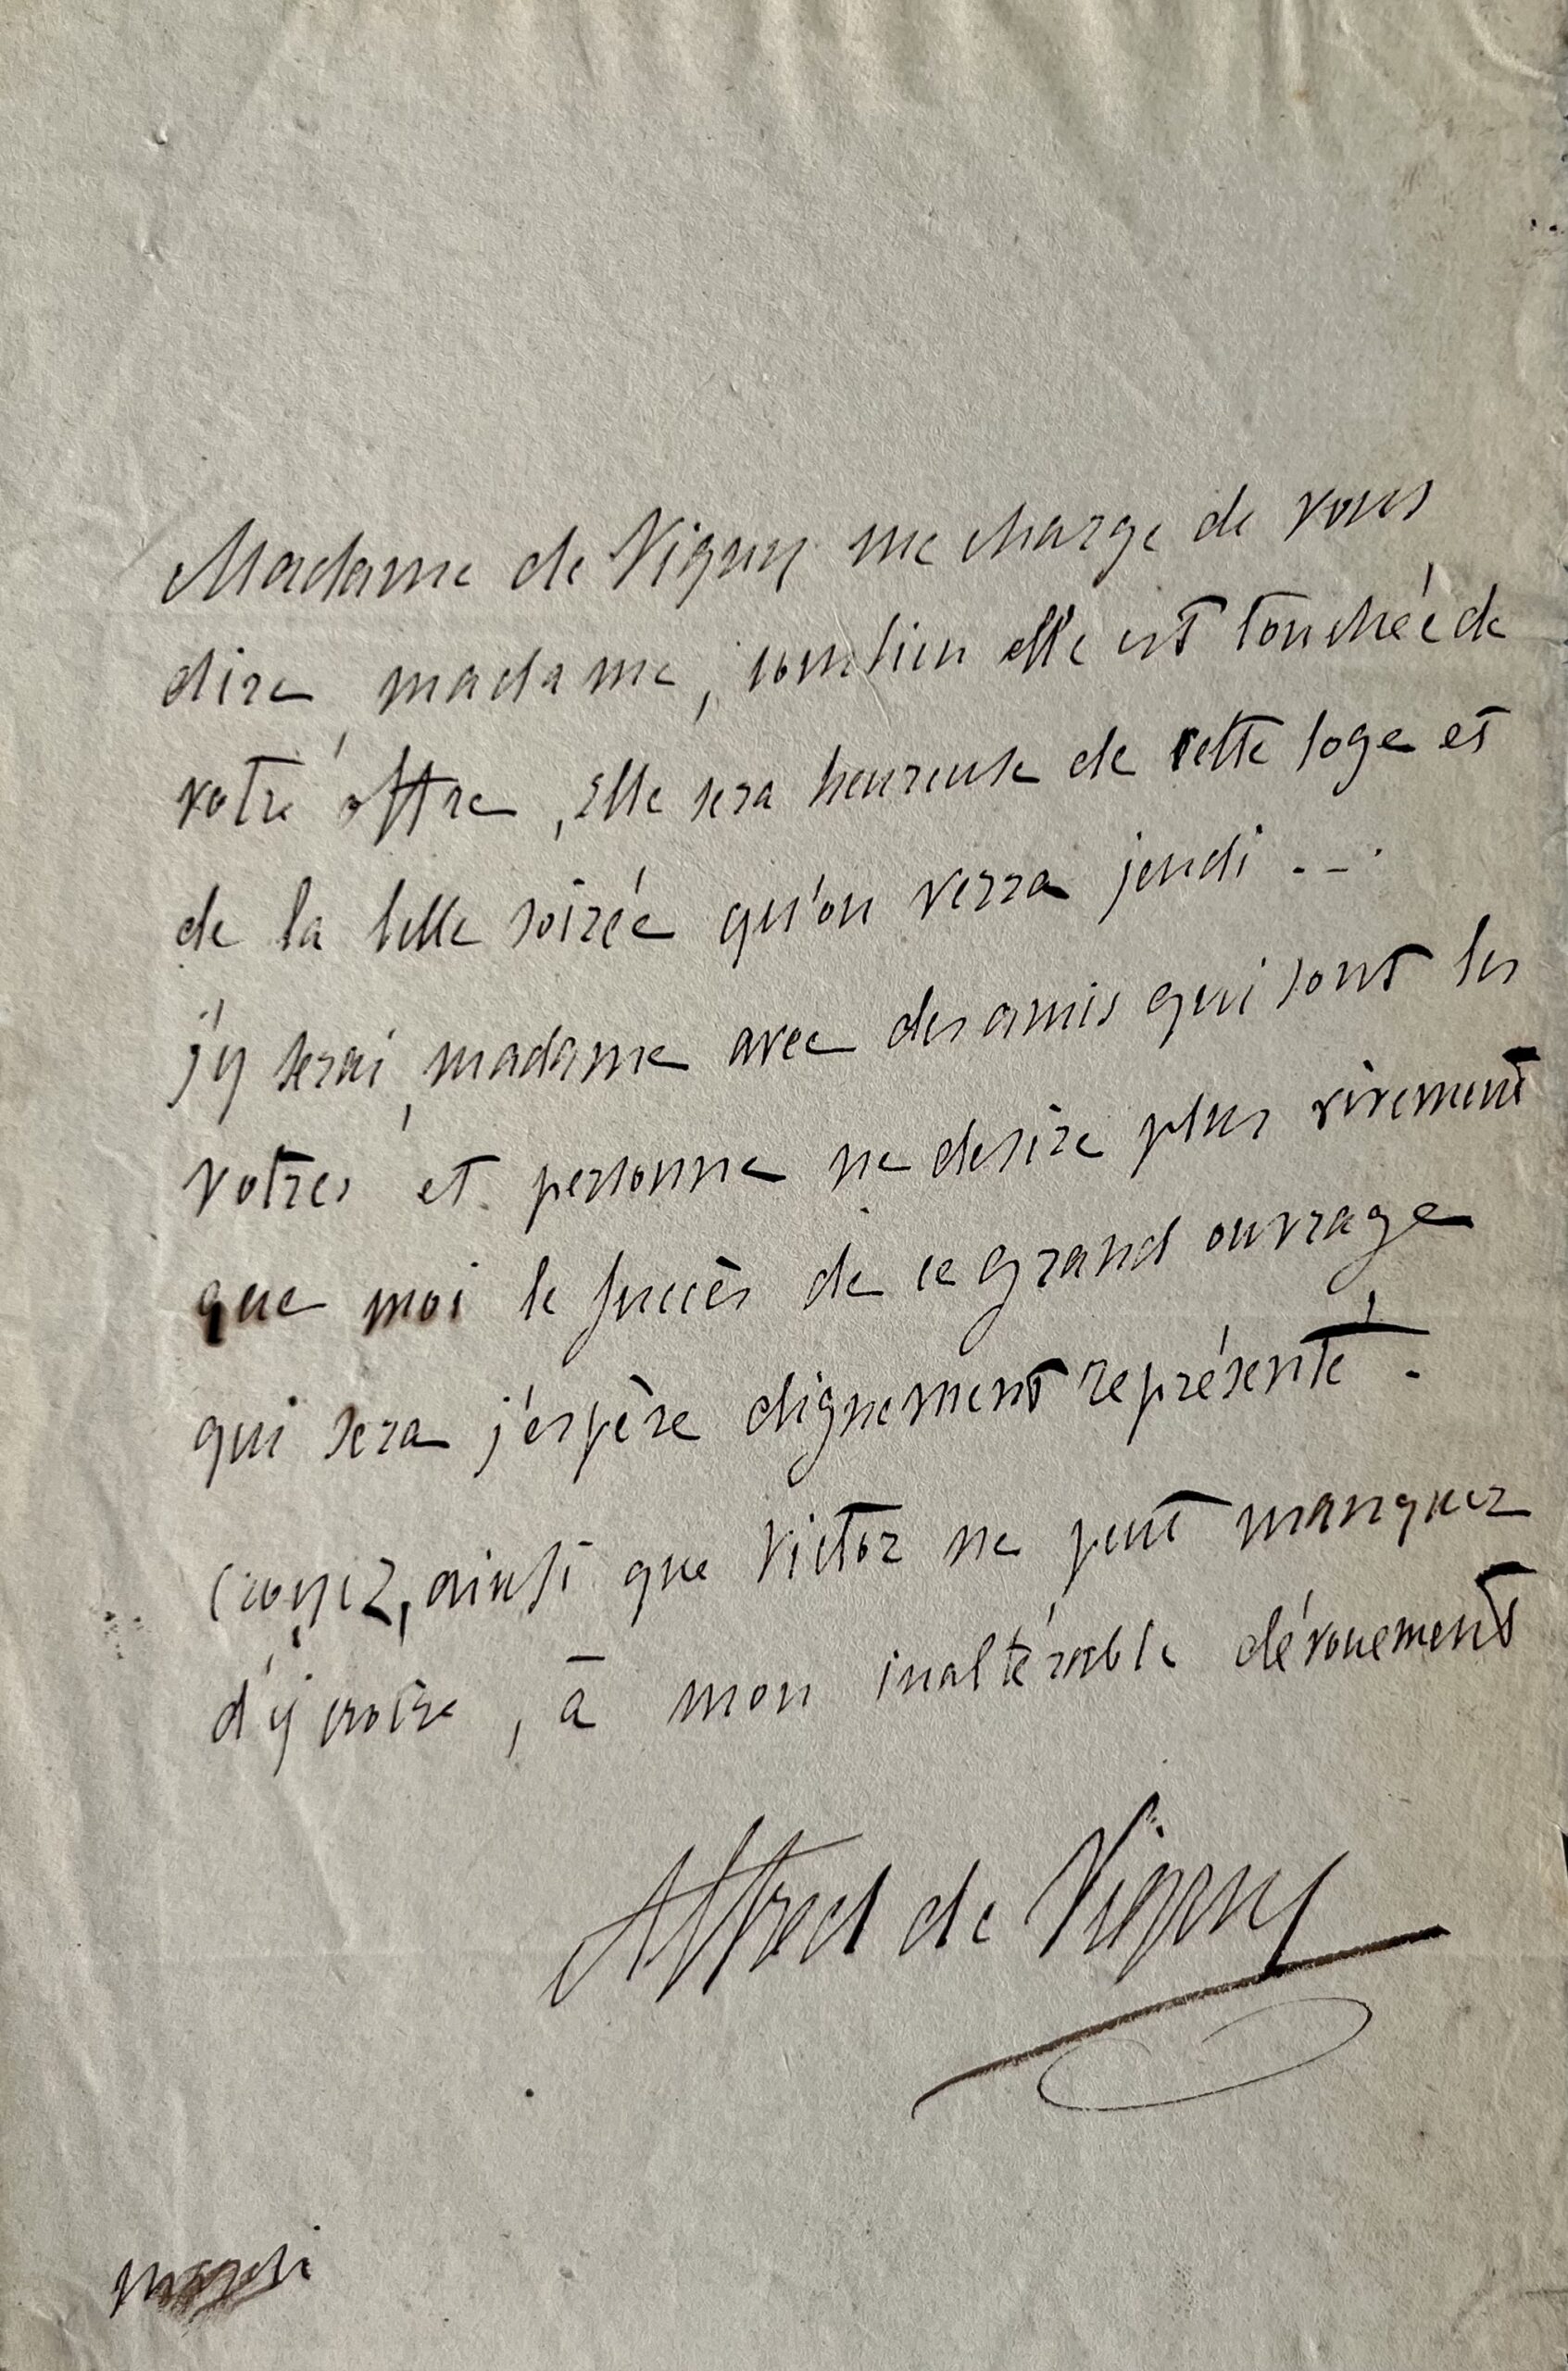 Madame de Vigny me charge de vous
dire, madame, combien elle est touchée de
votre offre, elle sera heureuse de cette loge et
de la belle soirée qu'on verra jeudi ...
j'y serai, madame avec des amis qui sont les
votres et personne ne desire plus vivement
que moi le succès de ce grand ouvrage
qui sera j'espère dignement représenté.
Croyez, ainsi que Victor ne peut manquer
d'y croire, à mon inaltérable dévouement
Alfred de Vigny
mardi